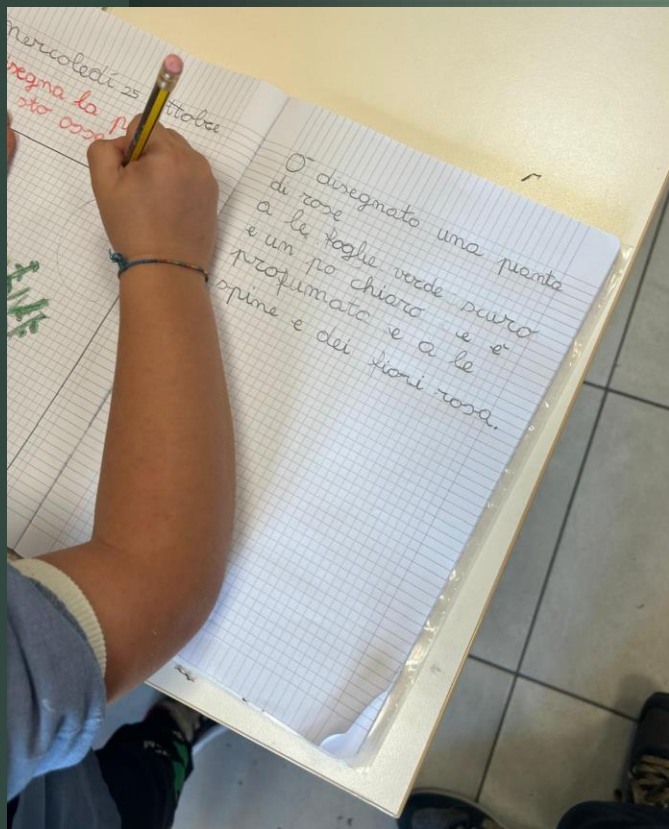 mercoledì 25 ottobre
segna la
sto osse
O disegnato una pianta
di rose
a le foglie verde scuro
e un po chiaro e è
profumato e a le
spine e dei fiori rosa.